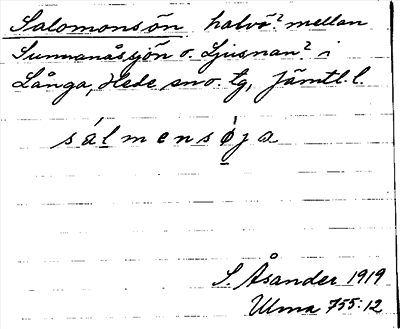 Salomonsön halvö? mellan
Sunnanåsjön o. Ljusnan? i
Långa, Hede sn o. tg, Jämtl. l.
sálmensø̀ja
S. Åsander 1919
Ulma 755:12